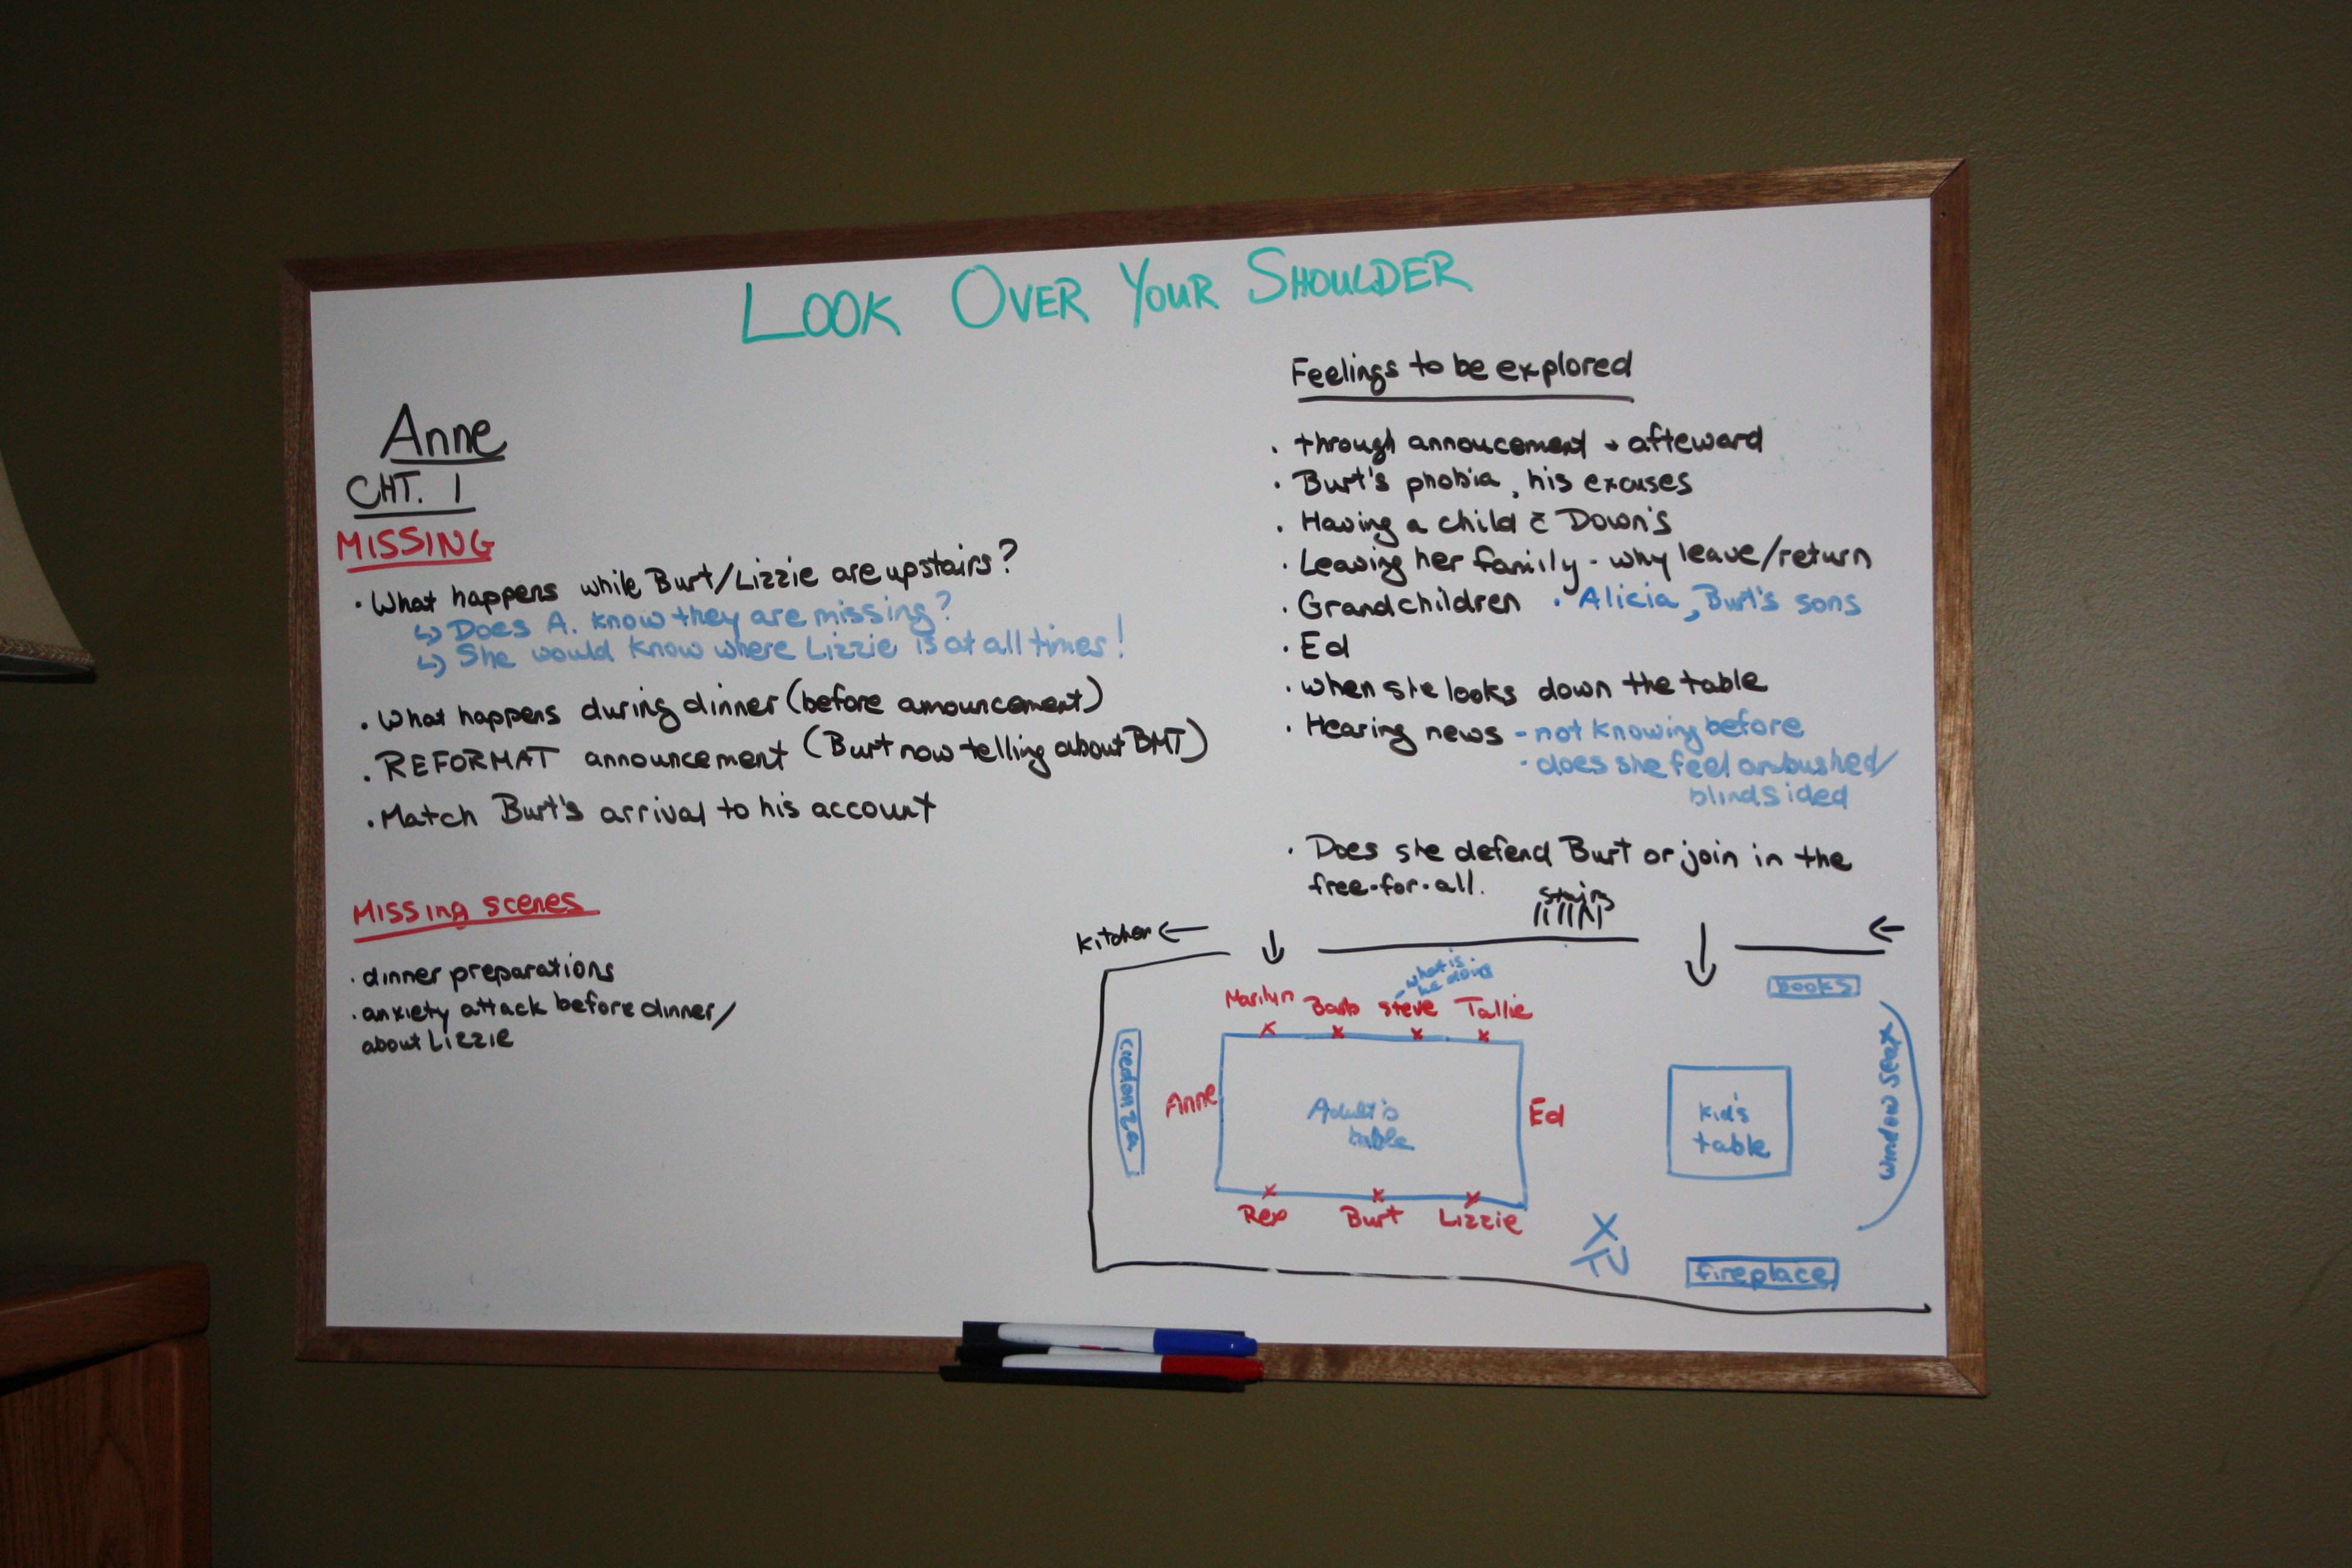 LOOK OVER YOUR SHOULDER
Anne
CHT. 1
MISSING
· What happens while Burt/Lizzie are upstairs?
↳ Does A. know they are missing?
↳ She would know where Lizzie is at all times!
· What happens during dinner (before announcement)
· REFORMAT announcement (Burt now telling about BMT)
· Match Burt's arrival to his account
Missing scenes
· dinner preparations
· anxiety attack before dinner/
about Lizzie
Feelings to be explored
· through annoucement + afteward
· Burt's phobia, his excuses
· Having a child c̄ Down's
· Leaving her family - why leave/return
· Grandchildren · Alicia, Burt's sons
· Ed
· when she looks down the table
· Hearing news - not knowing before
- does she feel ambushed/
blindsided
· Does she defend Burt or join in the
free-for-all.
stairs
kitchen ←
what is
he doing
books
Marilyn Barb Steve Tallie
credenza
Anne
Adult's
table
Ed
kid's
table
window seat
Rex Burt Lizzie
X
TV
fireplace